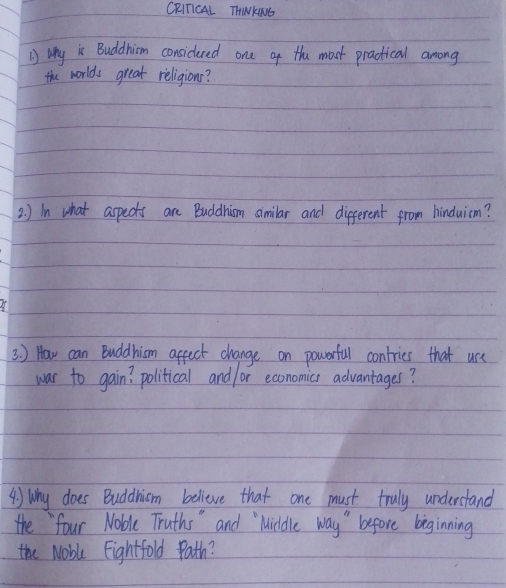 CRITICAL THINKING
1.) Why is Buddhism considered one of the most practical among
the worlds great religions?
2.) In what aspects are Buddhism similar and different from hinduism?
3.) How can Buddhism affect change on powerful contries that use
war to gain? political and/or economics advantages?
4.) Why does Buddhism believe that one must truly understand
the "four Noble Truths" and "Middle Way" before beginning
the Noble Eightfold Path?